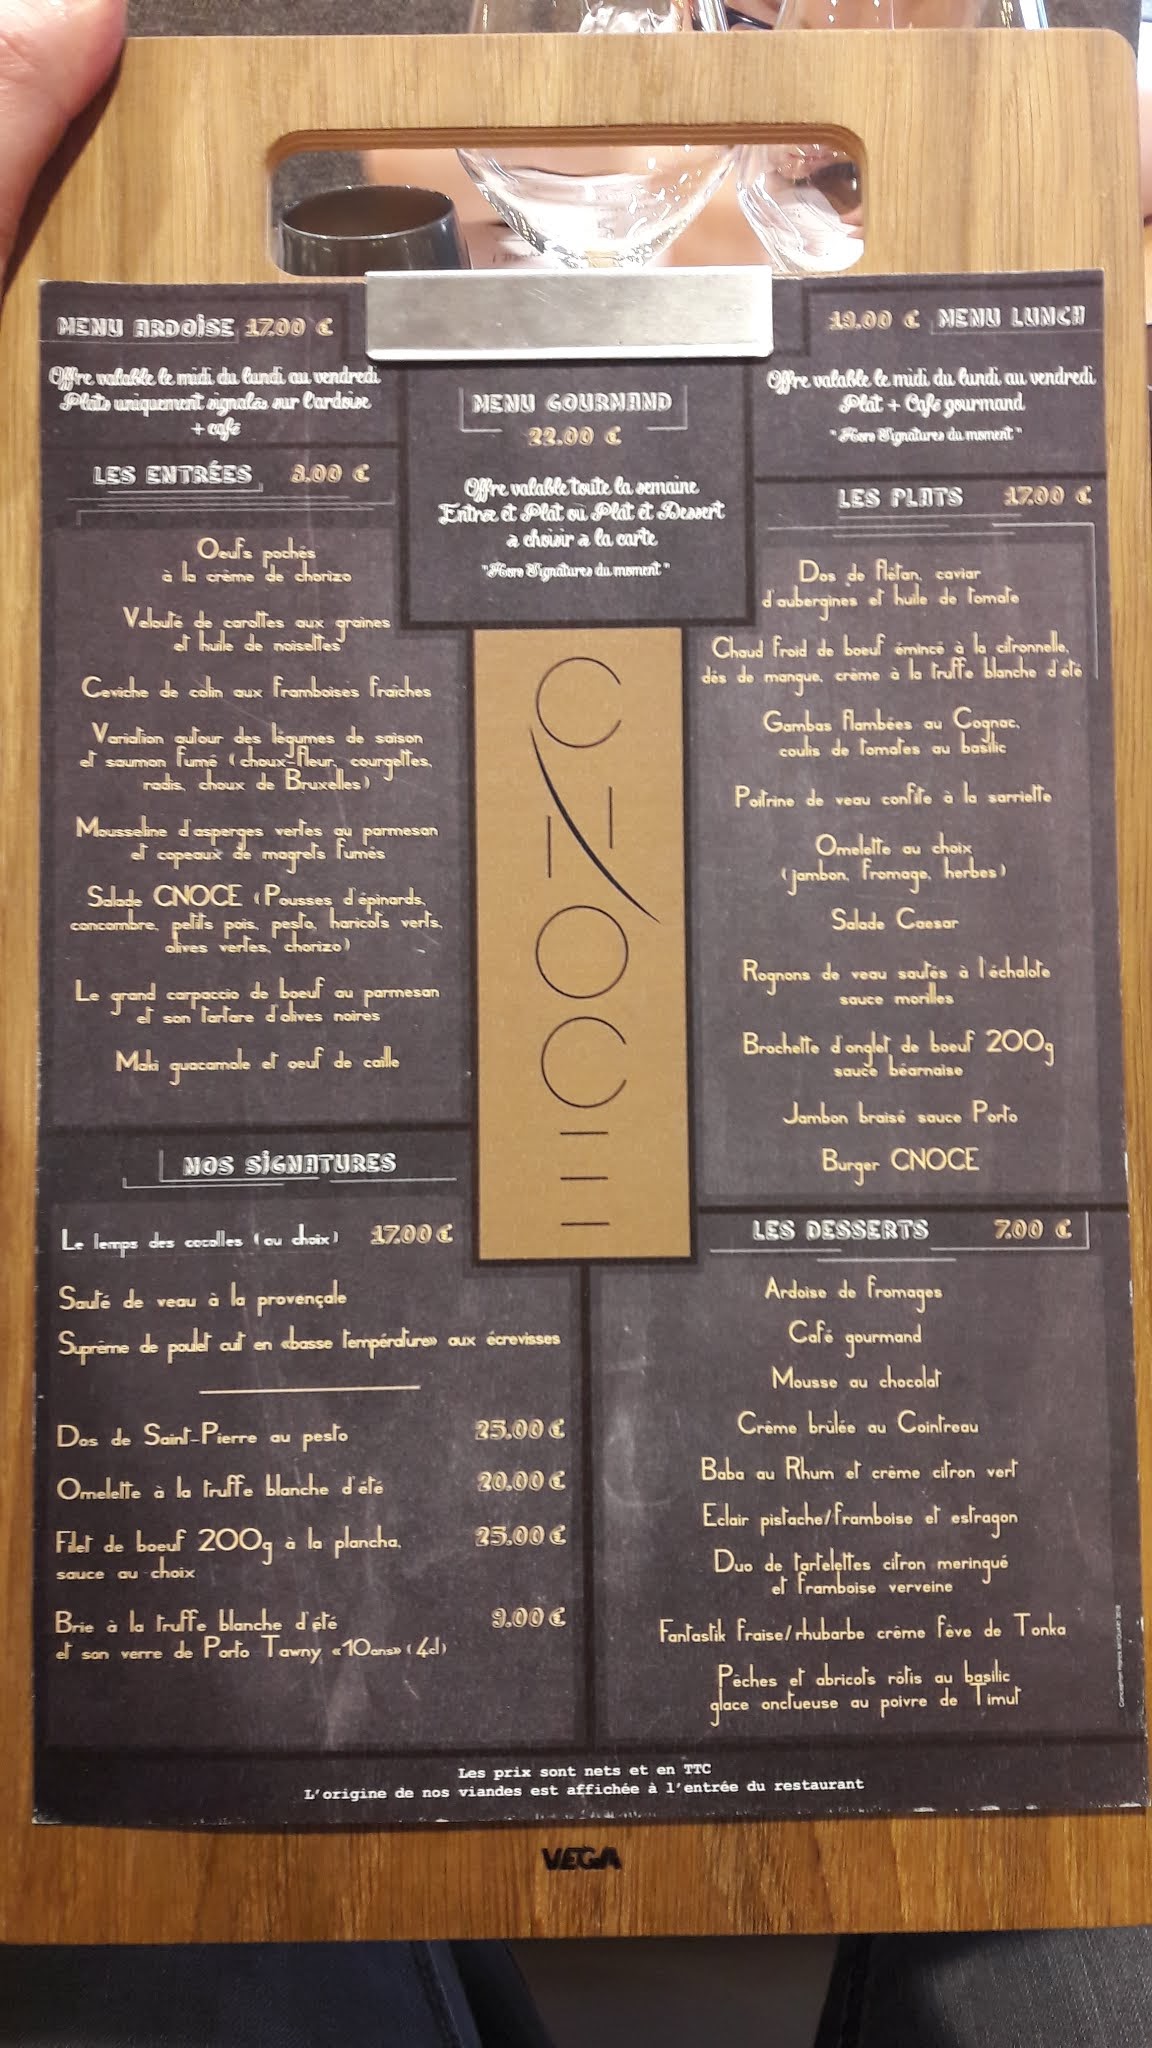 MENU ARDOISE 17.00 €
Offre valable le midi du lundi au vendredi
Plats uniquement signalés sur l'ardoise
+ café
MENU GOURMAND
22.00 €
Offre valable toute la semaine
Entrée et Plat ou Plat et Dessert
à choisir à la carte
"Hors Signatures du moment"
€ MENU LUNCH
Offre valable le midi du lundi au vendredi
Plat + Café gourmand
"Hors Signatures du moment"
LES ENTRÉES €
Oeufs pochés
à la crème de chorizo
Velouté de carottes aux graines
et huile de noisettes
Ceviche de colin aux framboises fraîches
Variation autour des légumes de saison
et saumon fumé (choux-fleur, courgettes,
radis, choux de Bruxelles)
Mousseline d'asperges vertes au parmesan
et copeaux de magrets fumés
Salade CNOCE (Pousses d'épinards,
concombre, petits pois, pesto, haricots verts,
olives vertes, chorizo)
Le grand carpaccio de boeuf au parmesan
et son tartare d'olives noires
Maki guacamole et oeuf de caille
CNOCE
LES PLATS 17.00 €
Dos de flétan, caviar
d'aubergines et huile de tomate
Chaud froid de boeuf émincé à la citronnelle,
dés de mangue, crème à la truffe blanche d'été
Gambas flambées au Cognac,
coulis de tomates au basilic
Poitrine de veau confite à la sarriette
Omelette au choix
(jambon, fromage, herbes)
Salade Caesar
Rognons de veau sautés à l'échalote
sauce morilles
Brochette d'onglet de boeuf 200g
sauce béarnaise
Jambon braisé sauce Porto
Burger CNOCE
NOS SIGNATURES
Le temps des cocottes (au choix) 17.00 €
Sauté de veau à la provençale
Suprême de poulet cuit en «basse température» aux écrevisses
Dos de Saint-Pierre au pesto 25.00 €
Omelette à la truffe blanche d'été 20.00 €
Filet de boeuf 200g à la plancha, 25.00 €
sauce au choix
Brie à la truffe blanche d'été 9.00 €
et son verre de Porto Tawny «10ans» (4cl)
LES DESSERTS 7.00 €
Ardoise de fromages
Café gourmand
Mousse au chocolat
Crème brûlée au Cointreau
Baba au Rhum et crème citron vert
Eclair pistache/framboise et estragon
Duo de tartelettes citron meringué
et framboise verveine
Fantastik fraise/rhubarbe crème fève de Tonka
Pêches et abricots rôtis au basilic
glace onctueuse au poivre de Timut
Les prix sont nets et en TTC
L'origine de nos viandes est affichée à l'entrée du restaurant
VEGA